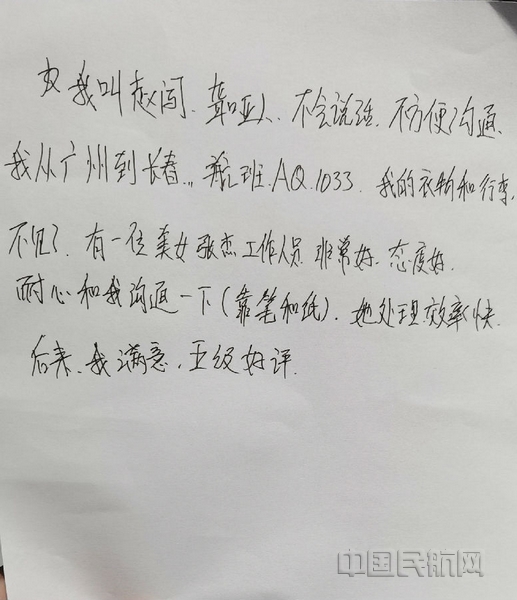 我叫赵闯、聋哑人、不会说话、不方便沟通、
我从广州到长春、航班.AQ.1033、我的衣物和行李,
不见了、有一位美女张杰工作人员、非常好、态度好、
耐心和我沟通一下(靠笔和纸)、她处理效率快、
后来、我满意、五级好评.
中国民航网